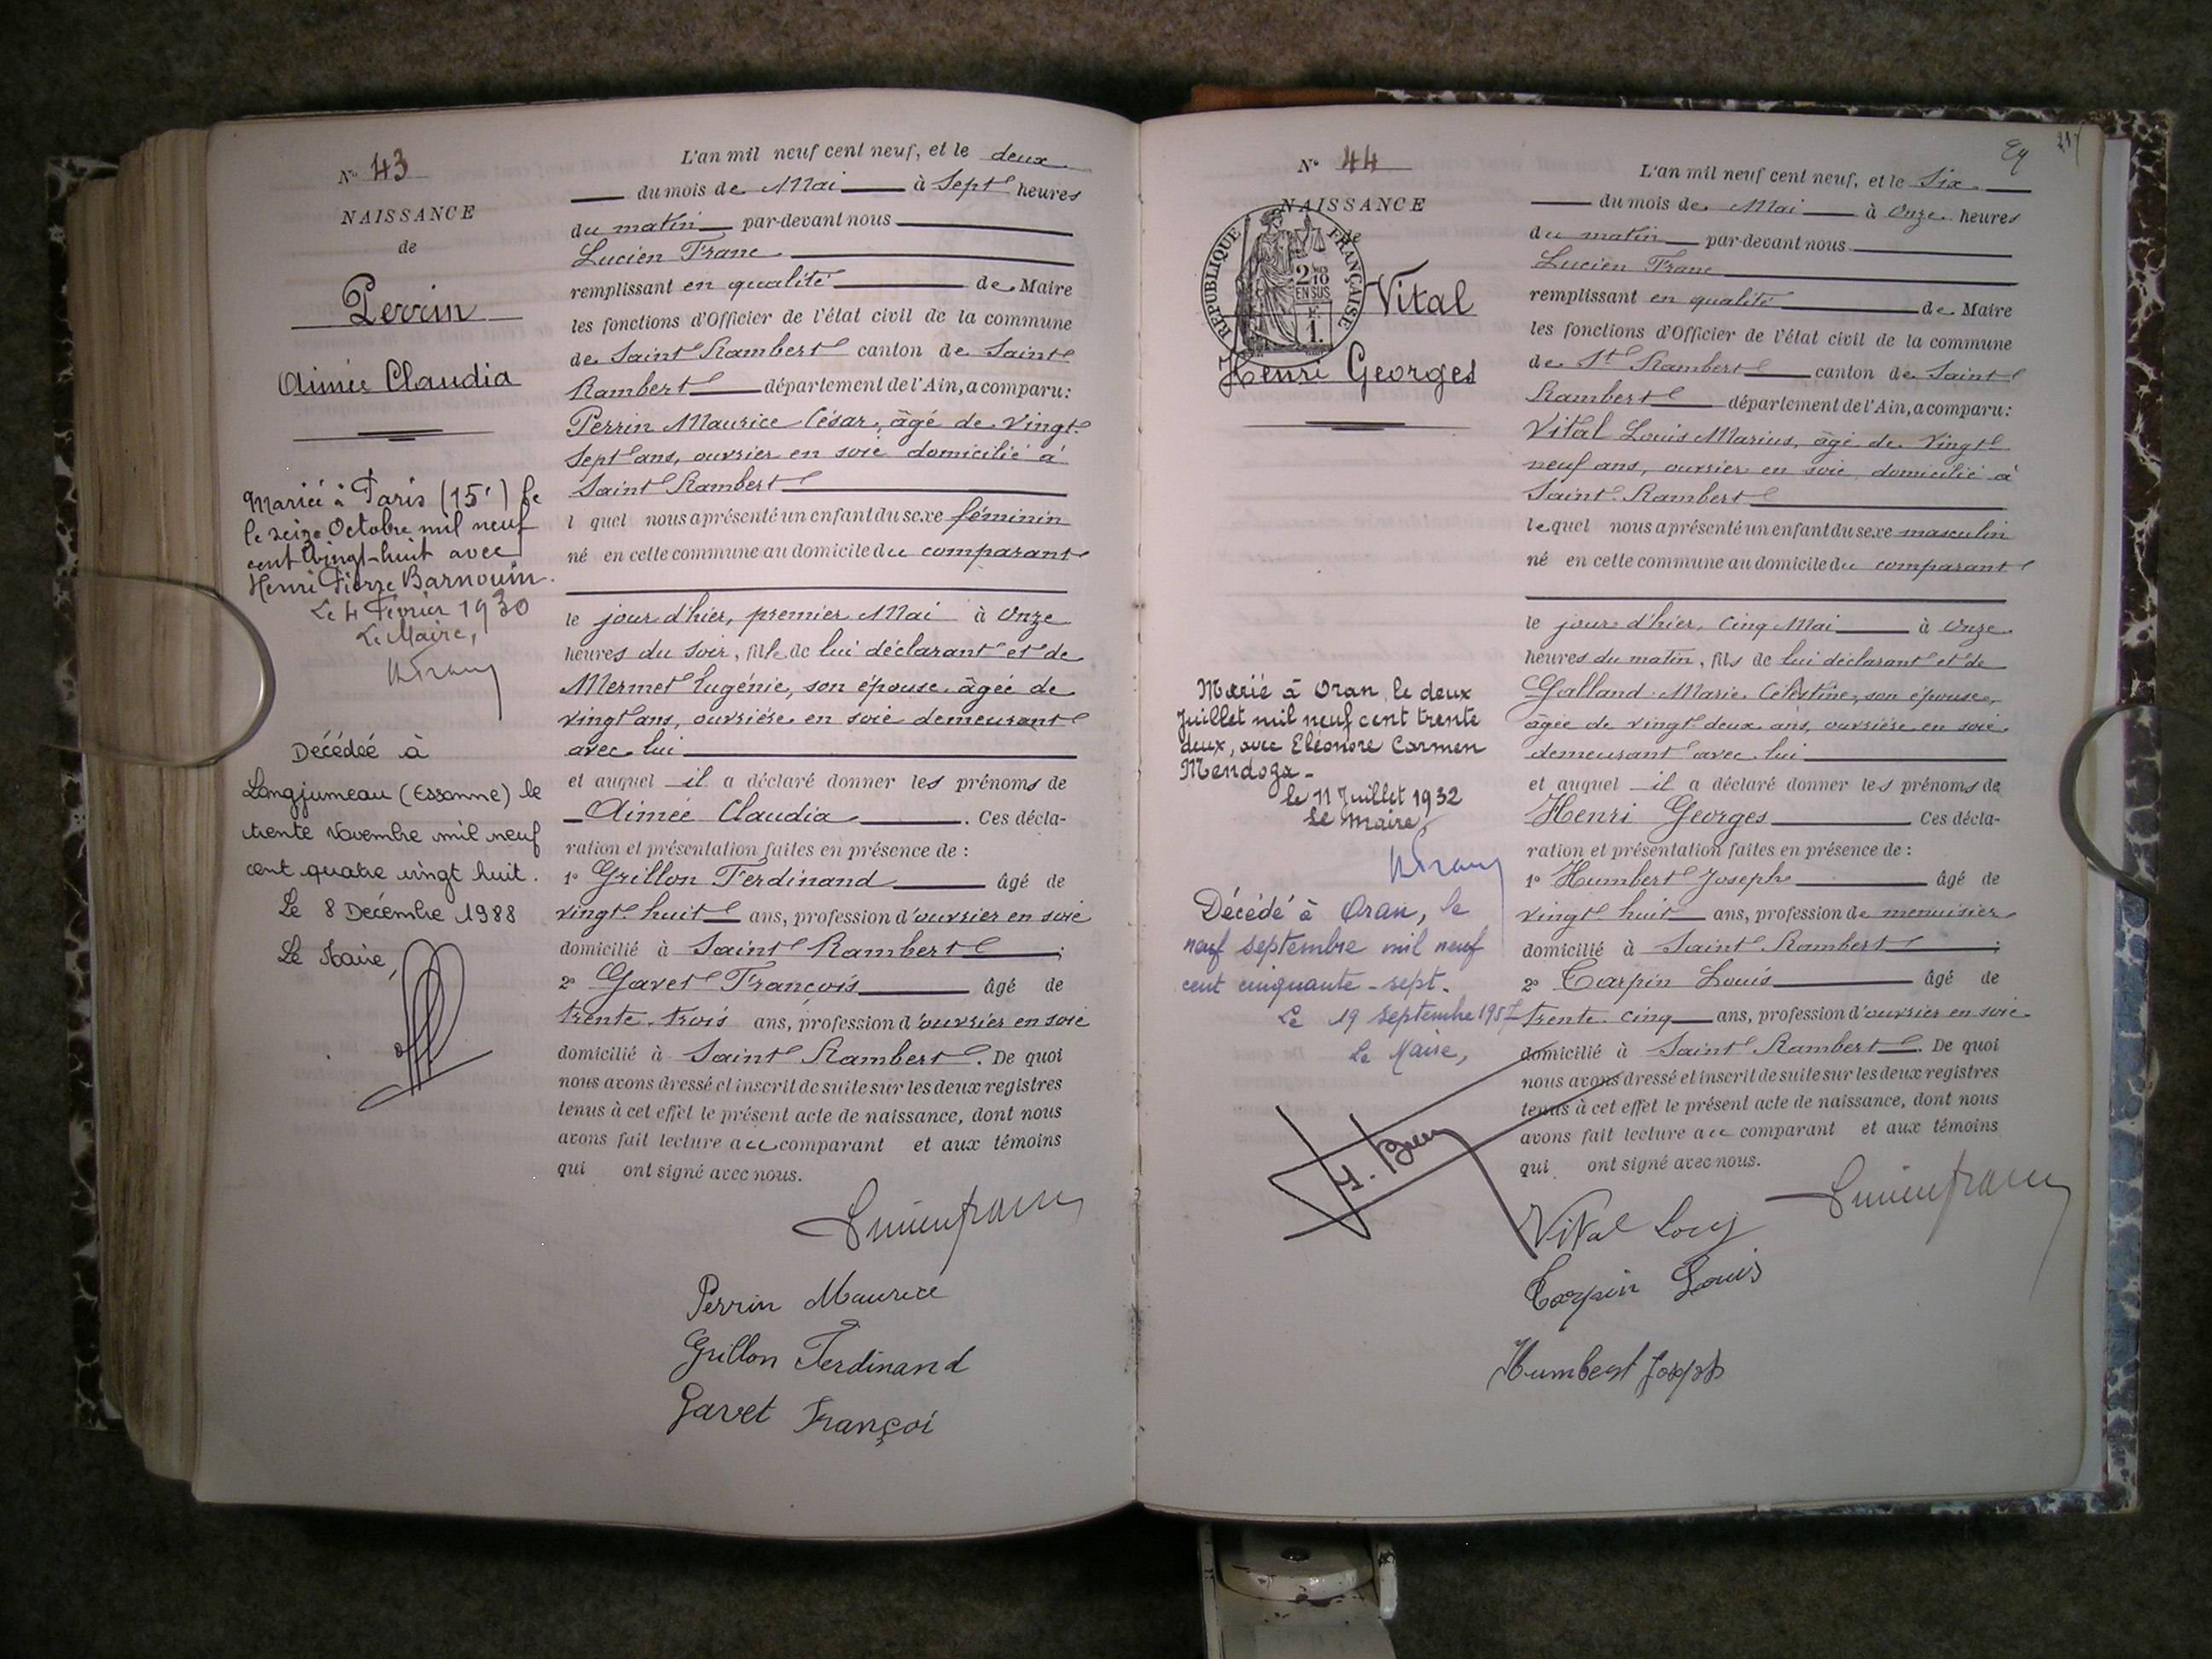 N° 43
NAISSANCE
de
Perrin
Aimée Claudia
Mariée à Paris (15e) le
le seize Octobre mil neuf
cent vingt-huit avec
Henri Pierre Barnouin.
Le 4 Février 1930
Le Maire,
Décédée à
Longjumeau (Essonne) le
trente Novembre mil neuf
cent quatre vingt huit.
Le 8 Décembre 1988
Le Maire,
L'an mil neuf cent neuf, et le deux
du mois de Mai à Sept heures
du matin par-devant nous
Lucien Franc
remplissant en qualité de Maire
les fonctions d'Officier de l'état civil de la commune
de Saint Rambert canton de Saint
Rambert département de l'Ain, a comparu:
Perrin Maurice César, âgé de vingt
sept ans, ouvrier en soie domicilié à
Saint Rambert
l quel nous a présenté un enfant du sexe féminin
né en cette commune au domicile du comparant
le jour d'hier, premier Mai à Onze
heures du soir, fille de lui déclarant et de
Mermet Eugénie, son épouse âgée de
vingt ans, ouvrière en soie demeurant
avec lui
et auquel il a déclaré donner les prénoms de
Aimée Claudia. Ces décla-
ration et présentation faites en présence de :
1° Grillon Ferdinand âgé de
vingt huit ans, profession d'ouvrier en soie
domicilié à Saint Rambert ;
2° Gavet François âgé de
trente trois ans, profession d'ouvrier en soie
domicilié à Saint Rambert. De quoi
nous avons dressé et inscrit de suite sur les deux registres
tenus à cet effet le présent acte de naissance, dont nous
avons fait lecture au comparant et aux témoins
qui ont signé avec nous.
Lucien Franc
Perrin Maurice
Grillon Ferdinand
Gavet Françoi
217
N° 44
NAISSANCE
de
RÉPUBLIQUE FRANÇAISE
2/10
EN SUS
1.
Vital
Henri Georges
Marié à Oran, le deux
Juillet mil neuf cent trente
deux, avec Eléonore Carmen
Mendoza-
le 11 Juillet 1932
Le Maire,
Décédé à Oran, le
neuf septembre mil neuf
cent cinquante-sept.
Le 19 septembre 1957
Le Maire,
L'an mil neuf cent neuf, et le Six
du mois de Mai à Onze heures
du matin par-devant nous
Lucien Franc
remplissant en qualité de Maire
les fonctions d'Officier de l'état civil de la commune
de St Rambert canton de Saint
Rambert département de l'Ain, a comparu:
Vital Louis Marius, âgé de vingt
neuf ans, ouvrier en soie domicilié à
Saint Rambert
lequel nous a présenté un enfant du sexe masculin
né en cette commune au domicile du comparant
le jour d'hier, cinq Mai à Onze
heures du matin, fils de lui déclarant et de
Galland Marie Célestine, son épouse,
âgée de vingt deux ans, ouvrière en soie
demeurant avec lui
et auquel il a déclaré donner les prénoms de
Henri Georges Ces décla-
ration et présentation faites en présence de :
1° Humbert Joseph âgé de
vingt huit ans, profession de menuisier
domicilié à Saint Rambert ;
2° Carpin Louis âgé de
trente cinq ans, profession d'ouvrier en soie
domicilié à Saint Rambert. De quoi
nous avons dressé et inscrit de suite sur les deux registres
tenus à cet effet le présent acte de naissance, dont nous
avons fait lecture au comparant et aux témoins
qui ont signé avec nous.
Lucien Franc
Vital Louis
Carpin Louis
Humbert Joseph